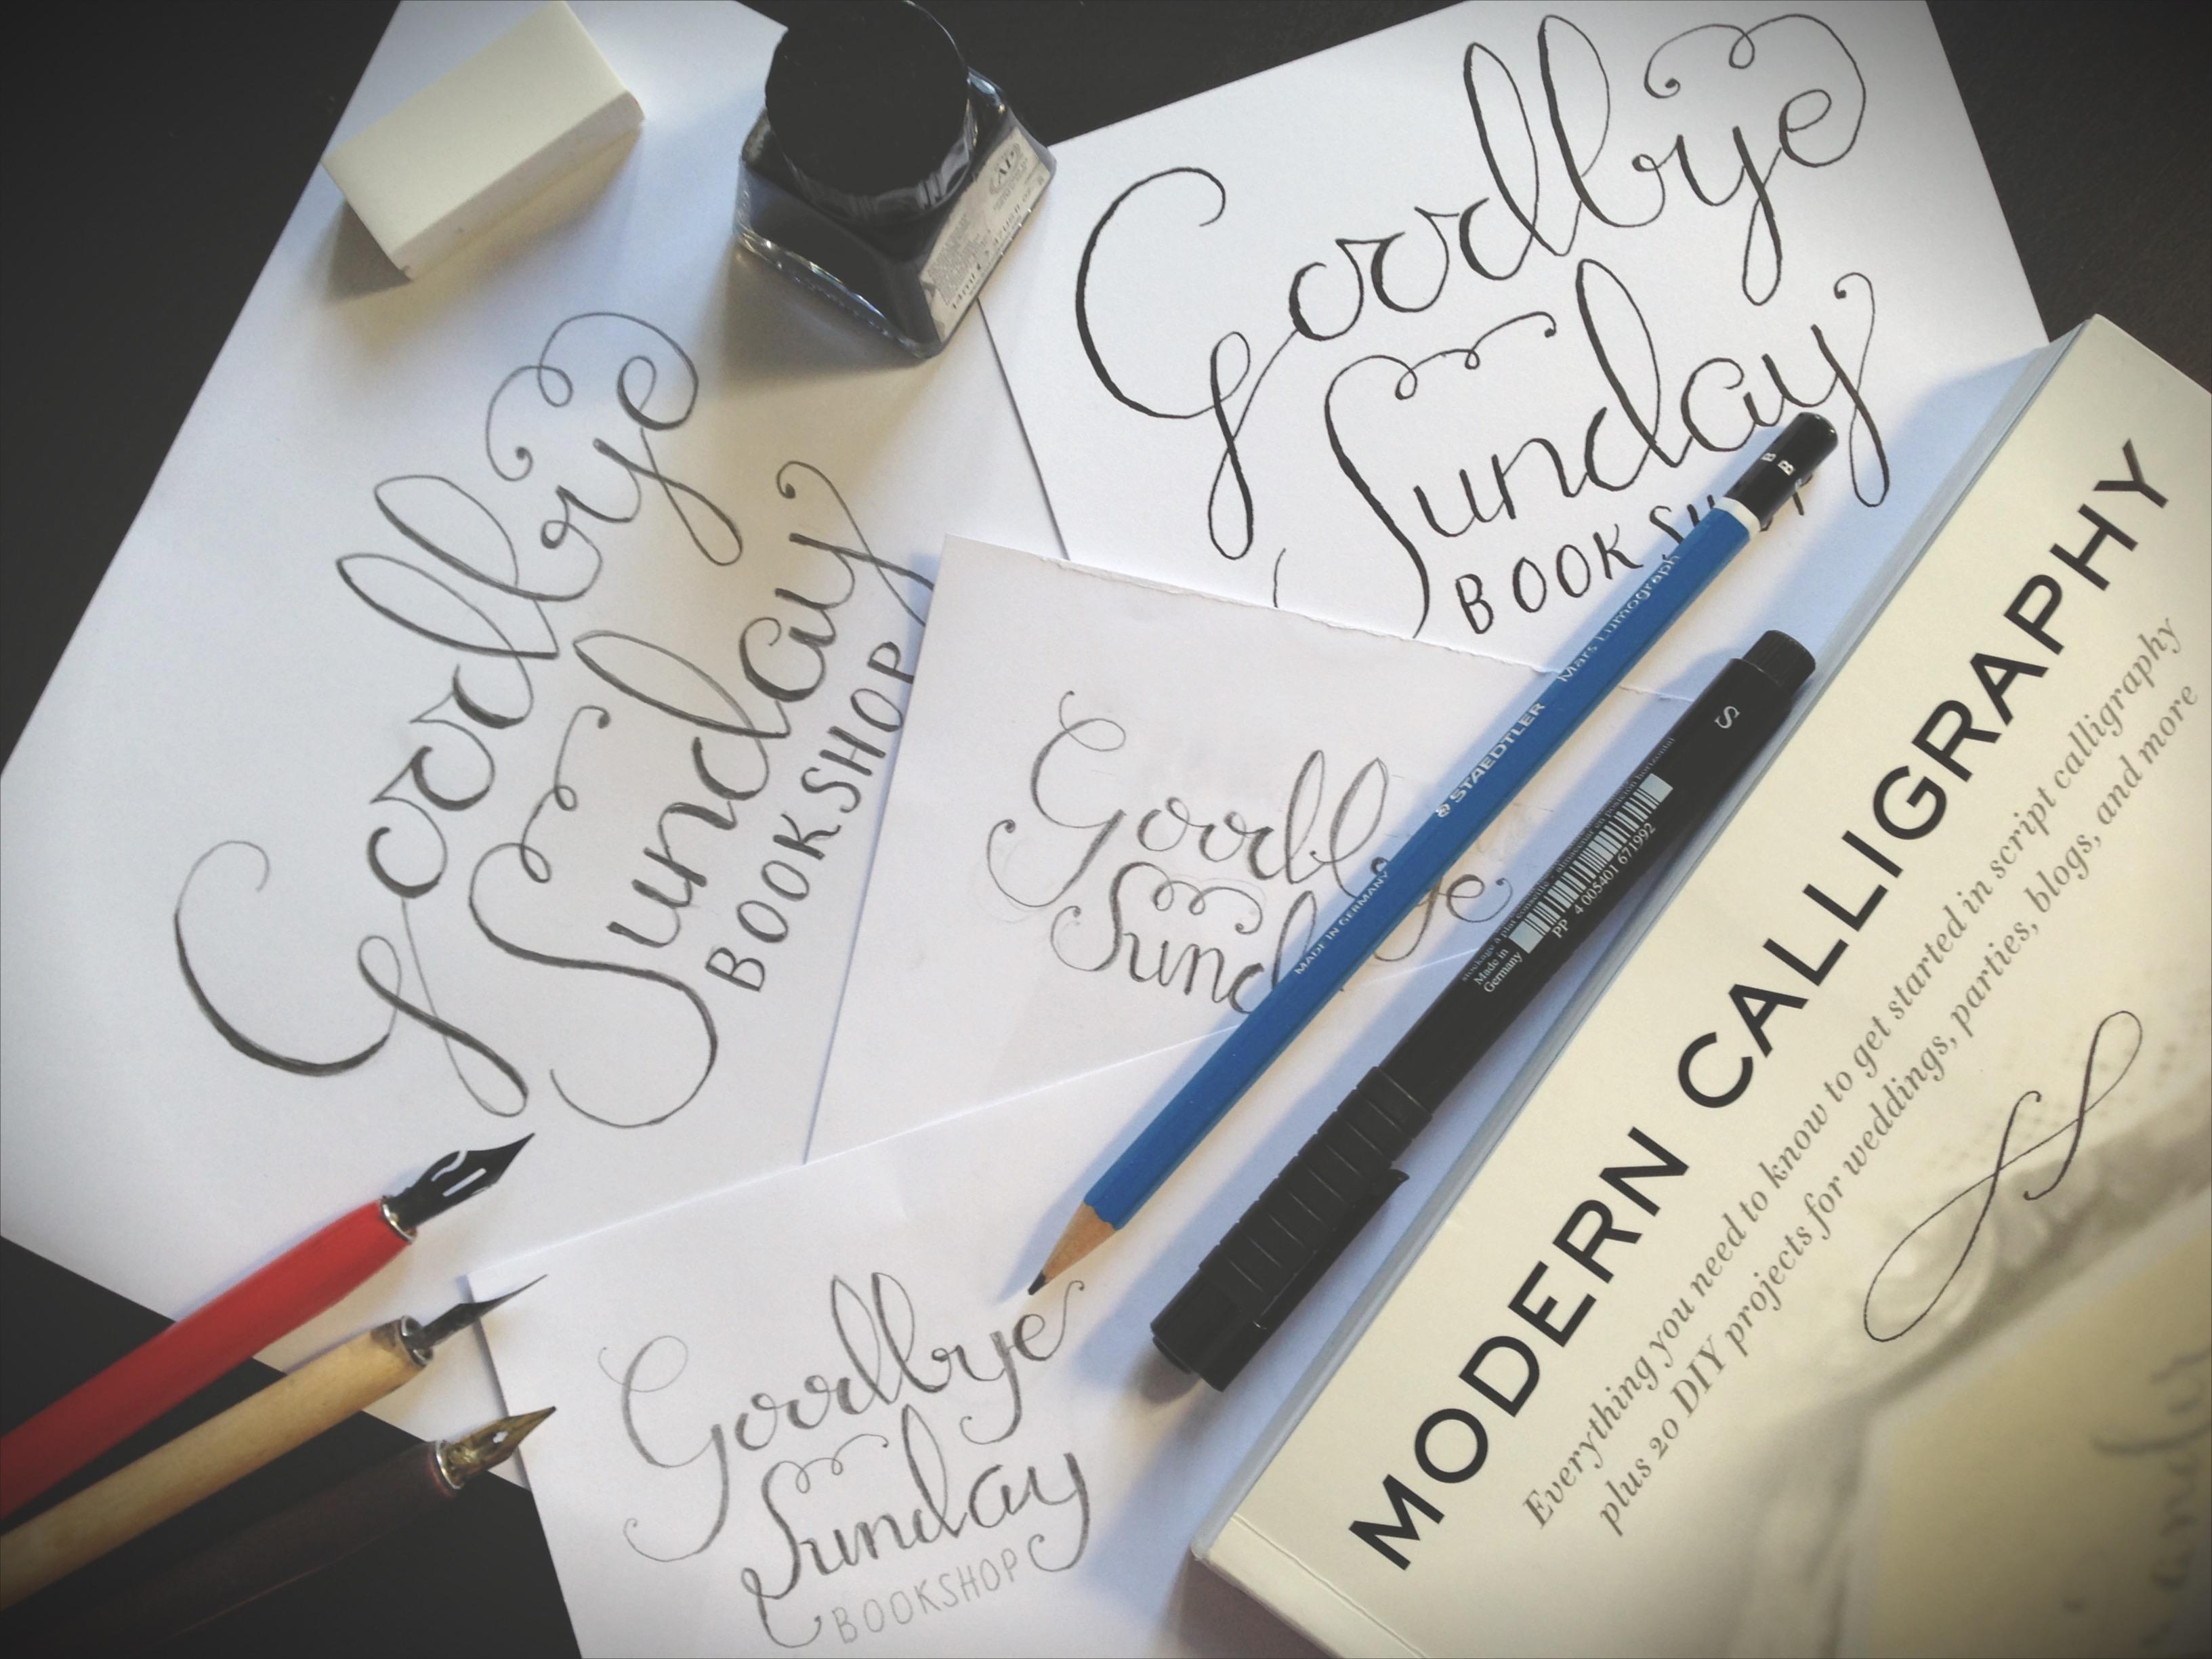 Goodbye
Sunday
BOOKSHOP
AP
14ml
Goodbye
Sunday
BOOK
Goodb
Sund
Goodbye
Sunday
BOOKSHOP
B
B
Mars Lumograph
STAEDTLER
MADE IN GERMANY
S
Made in
Germany
PP 4 005401 671992
MODERN CALLIGRAPHY
Everything you need to know to get started in script calligraphy
plus 20 DIY projects for weddings, parties, blogs, and more